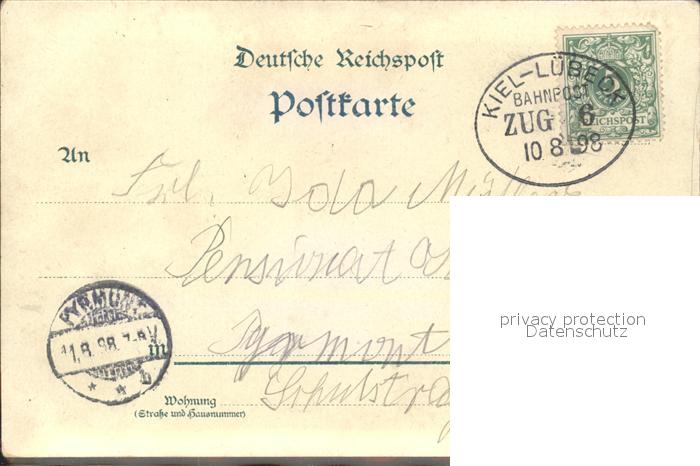 Deutsche Reichspost
Postkarte
KIEL-LÜBECK
BAHNPOST
ZUG 6
10 8 98
5
REICHSPOST
An
Frl. Ida
Pensionat
Pyrmont
Schulstra
PYRMONT
11.8.98.
b
in
Wohnung
(Straße und Hausnummer)
privacy protection
Datenschutz